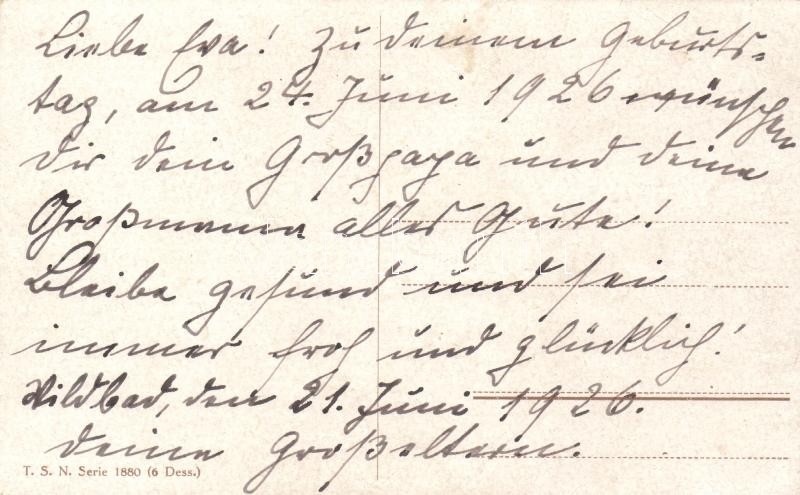 Liebe Eva! Zu deinem Geburts-
tag, am 24. Juni 1926 wünschen
dir dein Großpapa und deine
Großmama alles Gute!
Bleibe gesund und sei
immer froh und glücklich!
Wildbad, den 21. Juni 1926.
Deine Großeltern.
T. S. N. Serie 1880 (6 Dess.)